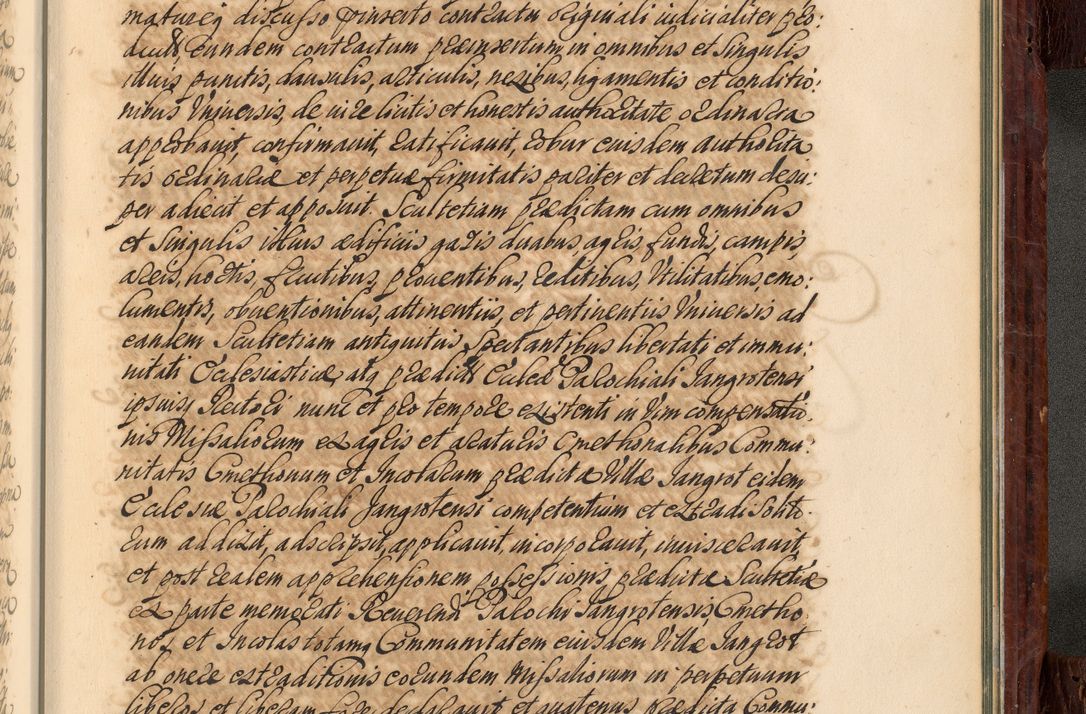 matureq discusso p̃inserto contractu originali iudicialiter pro:
ducti, eundem contractum præinsertum, in omnibus et singulis
illius punctis, clausulis, articulis, nexibus, ligamentis et conditio:
nibus Universis, de iure licitis et honestis authoritate ordinaria
approbavit, confirmavit, ratificavit, robur eiusdem authorita
tis ordinariæ et perpetuæ firmitatis pariter et decretum desu:
per adiecit et apposuit. Scultetiam prædictam cum omnibus
et singulis illius ædificiis gazis duabus, agris, fundis, campis,
areis, hortis, fructibus, proventibus, reditibus, Utilitatibus, emo:
lumentis, obventionibus, attinentiis, et pertinentiis Universis ad
eandem Scultetiam antiquitus Spectantibus libertati et immu:
nitati Ecclesiasticæ, atq prædictæ Ecclæ Parochiali Jangrotensi
ipsiusq Rectori nunc et pro tempore existenti in Vim compensatio:
nis Missaliorum ex agris et araturis Cmethonalibus Commu:
nitatis Cmethonum et Incolarum prædictæ Villæ Jangrot eidem
Ecclesiæ Parochiali Jangrotensi competentium et extradi Solito:
rum addixit, adscripsit, applicavit, incorporavit, invisceravit,
et post realem apprehensionem possessionis prædictæ Scultetiæ
ex parte memorati Reverendi Parochi Jangrotensis, Cmetho
nes et Incolas totamq Communitatem eiusdem Villæ Jangrot
ab onere extraditionis eorundem Missaliorum in perpetuum
liberos et liberam fore declaravit et quatenus prædicta Commu: